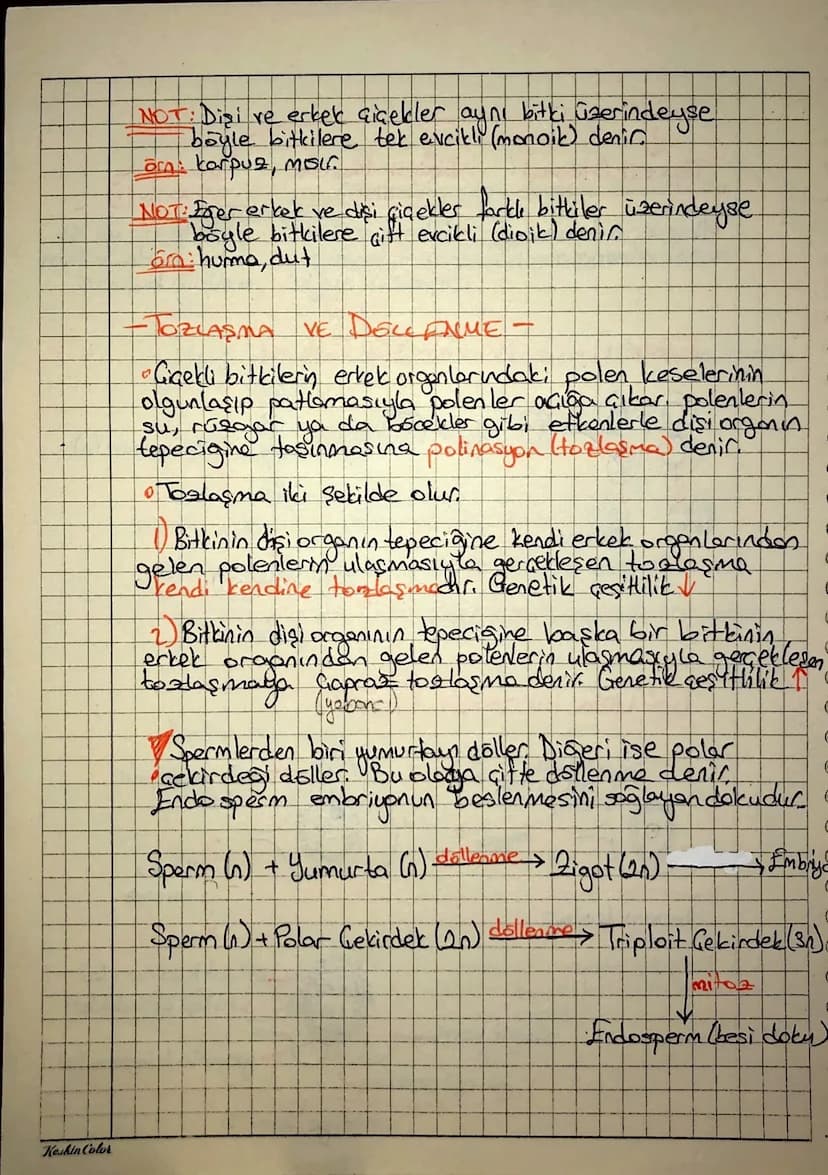 NOT: Dişi ve erkek çiçekler aynı bitki üzerindeyse
böyle bitkilere tek evcikli (monoik) denir.
örn: karpuz, mısır.
NOT: Eğer erkek ve dişi çiçekler farklı bitkiler üzerindeyse
böyle bitkilere çift evcikli (dioik) denir.
örn: hurma, dut
- TOZLAŞMA VE DÖLLENME -
• Çiçekli bitkilerin erkek organlarındaki polen keselerinin
olgunlaşıp patlamasıyla polenler açığa çıkar. polenlerin
su, rüzgar ya da böcekler gibi etkenlerle dişi organın
tepeciğine taşınmasına polinasyon (tozlaşma) denir.
• Tozlaşma iki şekilde olur.
1) Bitkinin dişi organın tepeciğine kendi erkek organlarından
gelen polenlerin ulaşmasıyla gerçekleşen tozlaşma
kendi kendine tozlaşmadır. Genetik çeşitlilik ↓
2) Bitkinin dişi organının tepeciğine başka bir bitkinin
erkek organından gelen polenlerin ulaşmasıyla gerçekleşen
tozlaşmaya çapraz tozlaşma denir. Genetik çeşitlilik ↑
(yabancı)
Spermlerden biri yumurtayı döller. Diğeri ise polar
çekirdeği döller. Bu olaya çifte döllenme denir.
Endosperm embriyonun beslenmesini sağlayan dokudur.
Sperm (n) + Yumurta (n) döllenme → Zigot (2n) → Embriyo
Sperm (n) + Polar Çekirdek (2n) döllenme → Triploit Çekirdek (3n)
mitoz
Endosperm (besi doku)
Keskin Color